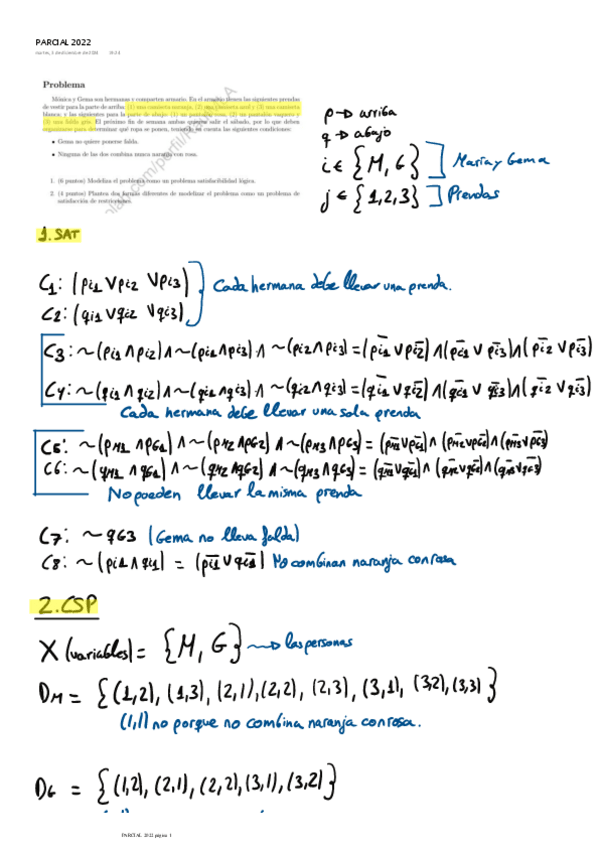 PARCIAL 2022
Problema
Mónica y Gema son hermanas y comparten armario. En el armario tienen las siguientes prendas
de vestir para la parte de arriba: (1) una camiseta naranja, (2) una camiseta azul y (3) una camiseta
blanca; y las siguientes para la parte de abajo: (1) un pantalón rosa, (2) un pantalón vaquero y
(3) una falda gris. El próximo fin de semana ambas quieren salir el sábado, por lo que deben
organizarse para determinar qué ropa se ponen, teniendo en cuenta las siguientes condiciones:
• Gema no quiere ponerse falda.
• Ninguna de las dos combina nunca naranja con rosa.
1. (6 puntos) Modeliza el problema como un problema satisfacibilidad lógica.
2. (4 puntos) Plantea dos formas diferentes de modelizar el problema como un problema de
satisfacción de restricciones.
p → arriba
q → abajo
i ∈ {M, G} ] María y Gema
j ∈ {1,2,3} ] Prendas
1. SAT
C1: (pi1 ∨ pi2 ∨ pi3)
C2: (qi1 ∨ qi2 ∨ qi3)
Cada hermana debe llevar una prenda.
C3: ~(pi1 ∧ pi2) ∧ ~(pi1 ∧ pi3) ∧ ~(pi2 ∧ pi3) = (p̅i̅1̅ ∨ p̅i̅2̅) ∧ (p̅i̅1̅ ∨ p̅i̅3̅) ∧ (p̅i̅2̅ ∨ p̅i̅3̅)
C4: ~(qi1 ∧ qi2) ∧ ~(qi1 ∧ qi3) ∧ ~(qi2 ∧ qi3) = (q̅i̅1̅ ∨ q̅i̅2̅) ∧ (q̅i̅1̅ ∨ q̅i̅3̅) ∧ (q̅i̅2̅ ∨ q̅i̅3̅)
Cada hermana debe llevar una sola prenda
C5: ~(pM1 ∧ pG1) ∧ ~(pM2 ∧ pG2) ∧ ~(pM3 ∧ pG3) = (p̅M̅1̅ ∨ p̅G̅1̅) ∧ (p̅M̅2̅ ∨ p̅G̅2̅) ∧ (p̅M̅3̅ ∨ p̅G̅3̅)
C6: ~(qM1 ∧ qG1) ∧ ~(qM2 ∧ qG2) ∧ ~(qM3 ∧ qG3) = (q̅M̅1̅ ∨ q̅G̅1̅) ∧ (q̅M̅2̅ ∨ q̅G̅2̅) ∧ (q̅M̅3̅ ∨ q̅G̅3̅)
No pueden llevar la misma prenda
C7: ~qG3 (Gema no lleva falda)
C8: ~(pi1 ∧ qi1) = (p̅i̅1̅ ∨ q̅i̅1̅) No combinan naranja con rosa
2. CSP
X (variables) = {M, G} → las personas
DM = {(1,2), (1,3), (2,1), (2,2), (2,3), (3,1), (3,2), (3,3)}
(1,1) no porque no combina naranja con rosa.
DG = {(1,2), (2,1), (2,2), (3,1), (3,2)}
PARCIAL 2022 página 1